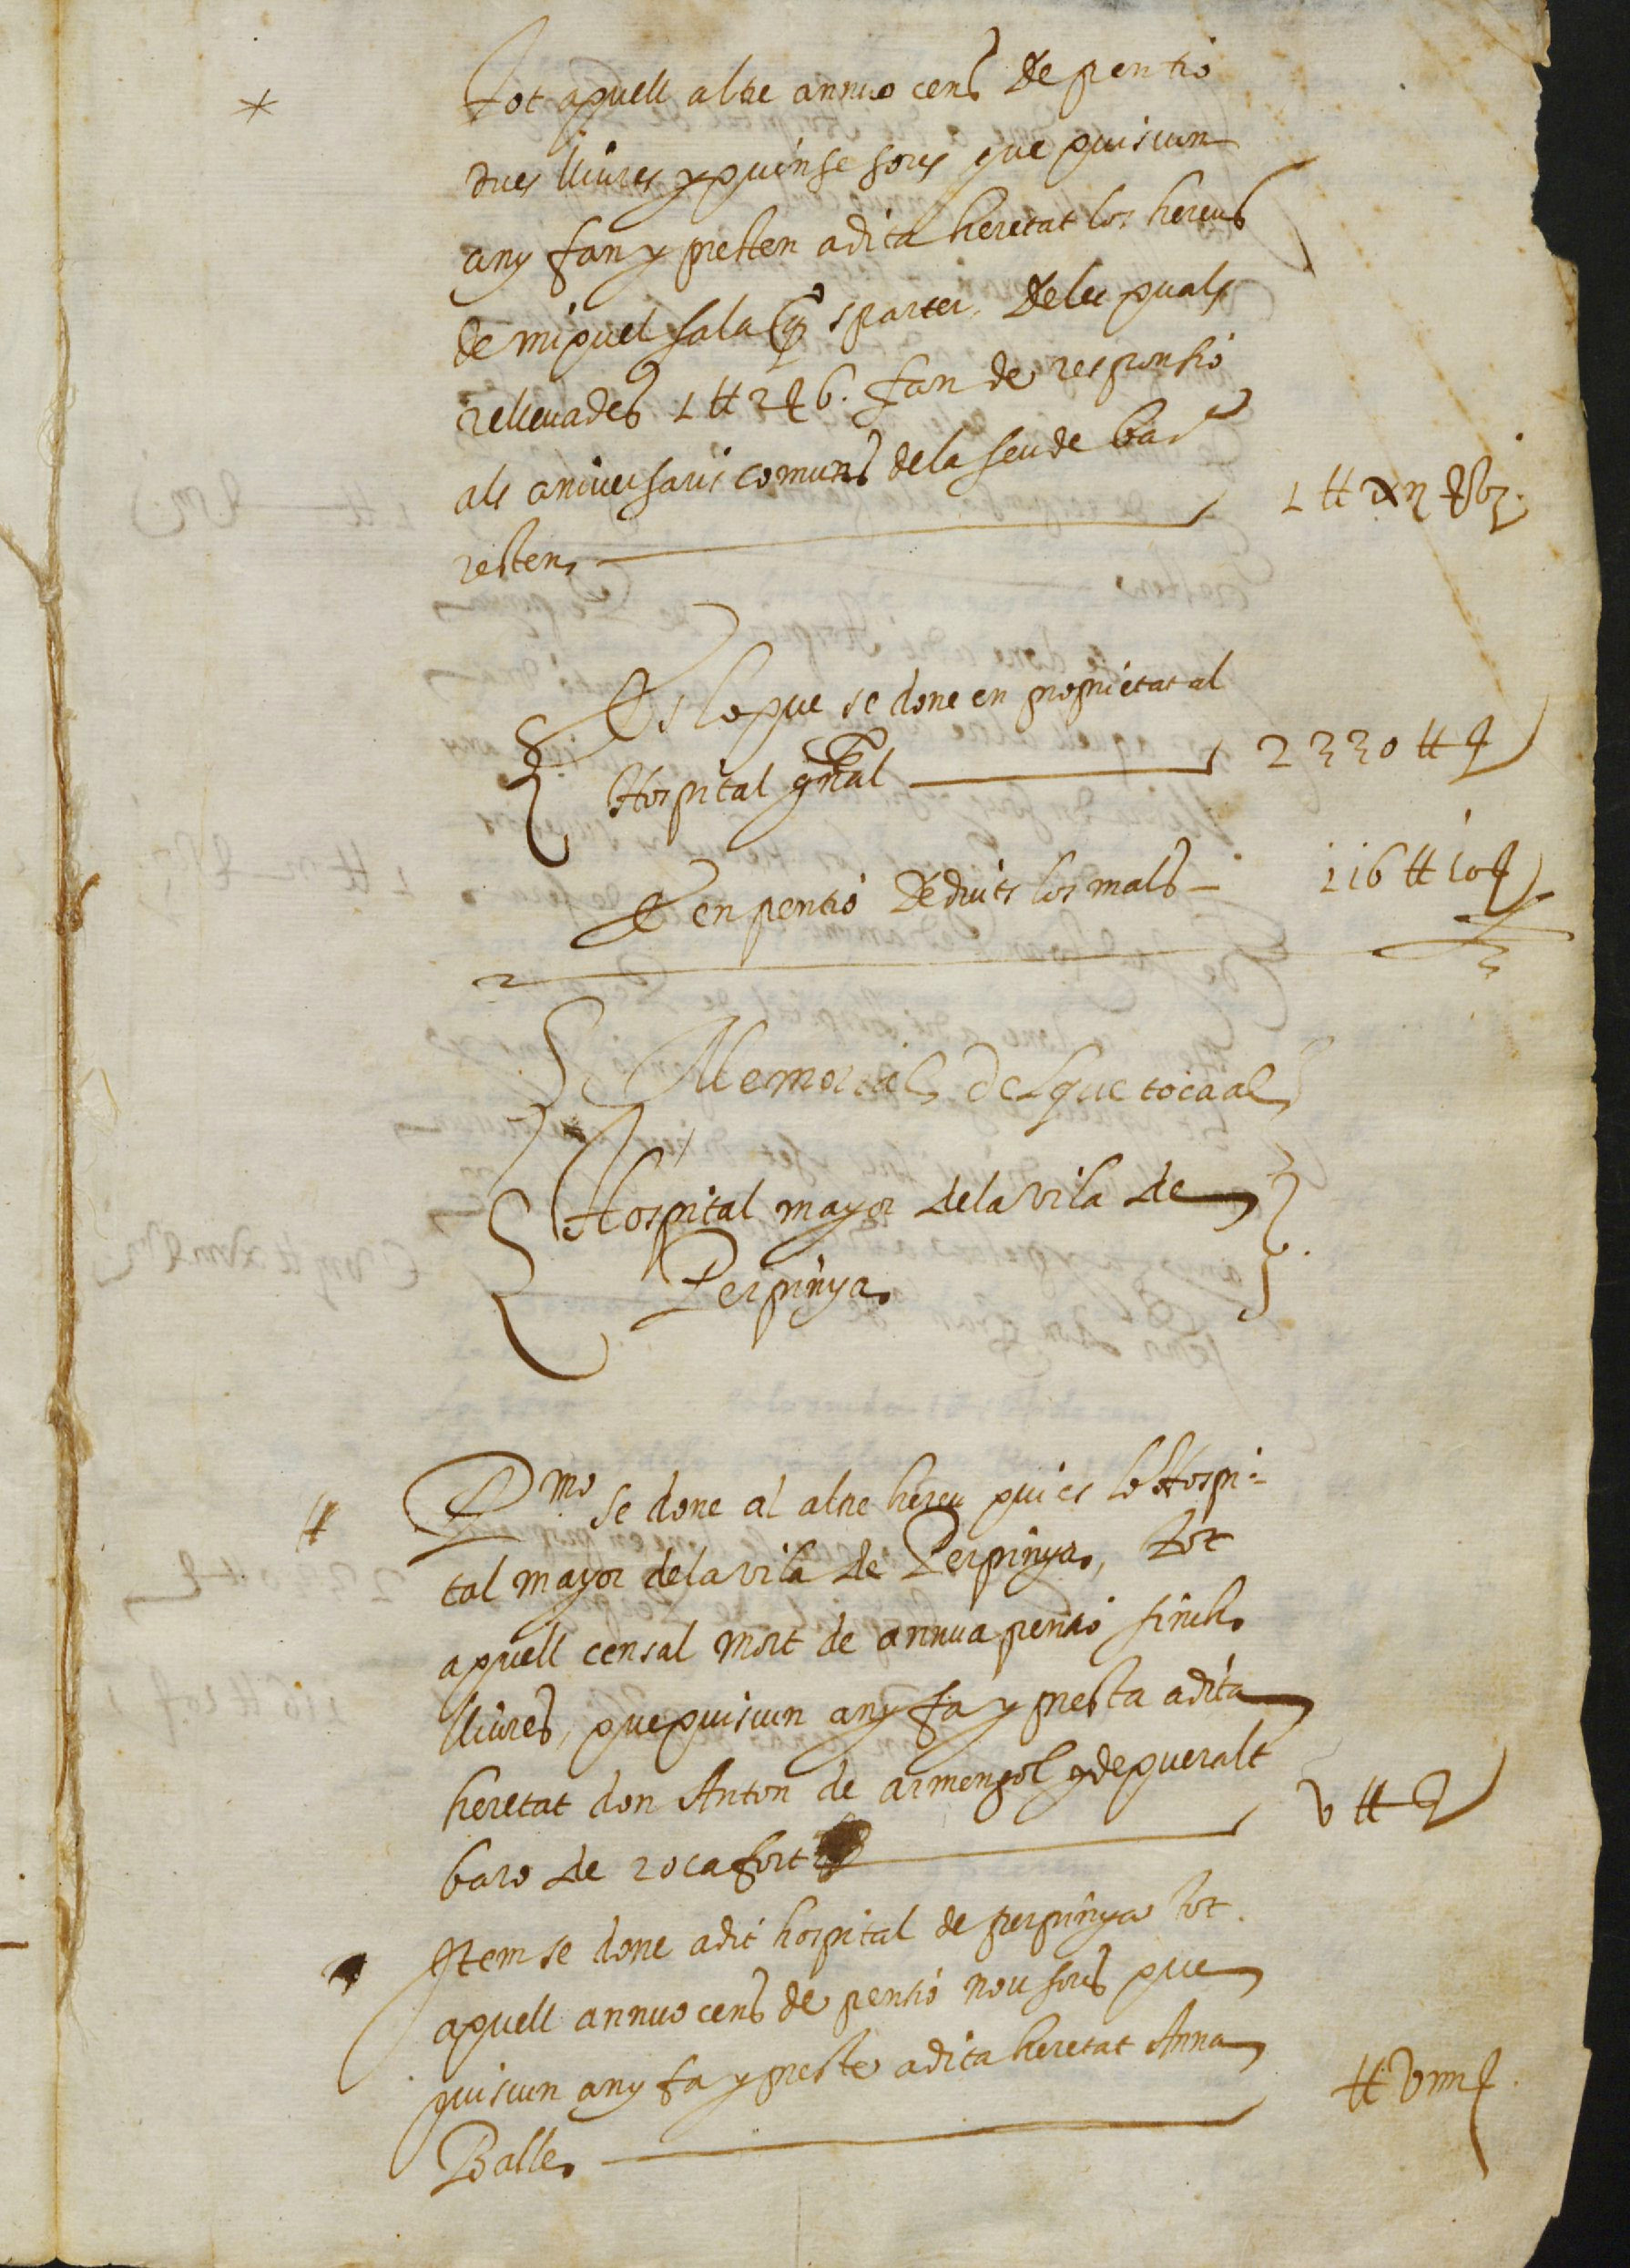 Tot aquell altre annuo cens de pentio
dues lliures y quinse sous que quiscun
any fan y presten a dita heretat los hereus
de miquel sala q° sparter. De les quals
rellevades 1 ℔ 2 ß 6. fan de responsio
als aniversaris comuns de la seu de Barna
resten
1 ℔ xii ß vi.
Es lo que se done en proprietat al
Hospital gnal 2330 ℔ ß
E en pentio deduits los mals 116 ℔ 10 ß
Memorial del que toca al
Hospital mayor de la vila de
Perpinya
Pmo se done al altre hereu qui es lo Hospi-
tal mayor de la vila de Perpinya, tot
aquell censal mort de annua pentio sinch
lliures, que quiscun any fa y presta a dita
heretat don Anton de armengol y de queralt
baro de rocafort
v ℔ ß
Item se done a dit hospital de perpinya tot
aquell annuo cens de pentio nou sous que
quiscun any fa y preste a dita heretat Anna
Balle
℔ viiii ß